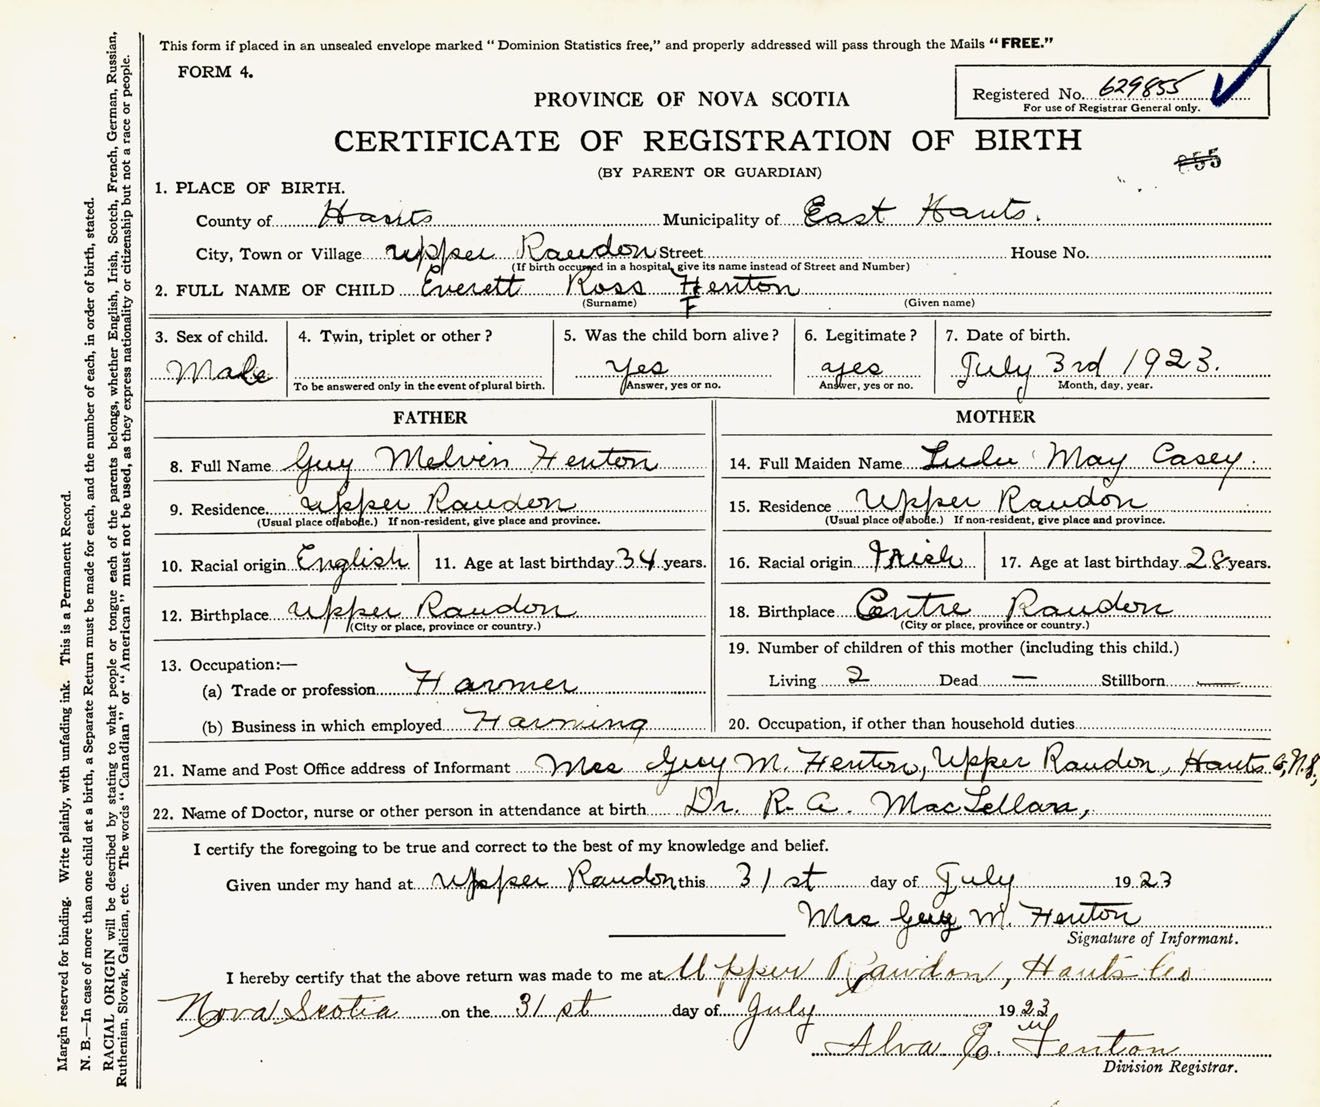 This form if placed in an unsealed envelope marked "Dominion Statistics free," and properly addressed will pass through the Mails "FREE."
FORM 4.
Registered No. 629855
For use of Registrar General only.
PROVINCE OF NOVA SCOTIA
CERTIFICATE OF REGISTRATION OF BIRTH
(BY PARENT OR GUARDIAN)
1. PLACE OF BIRTH.
County of Hants Municipality of East Hants.
City, Town or Village Upper Rawdon Street House No.
(If birth occurred in a hospital, give its name instead of Street and Number)
2. FULL NAME OF CHILD Everett Ross Fenton
(Surname) F (Given name)
3. Sex of child. 4. Twin, triplet or other? 5. Was the child born alive? 6. Legitimate? 7. Date of birth.
Male Yes yes July 3rd 1923.
To be answered only in the event of plural birth. Answer, yes or no. Answer, yes or no. Month, day, year.
FATHER MOTHER
8. Full Name Guy Melvin Fenton 14. Full Maiden Name Lulu May Casey.
9. Residence Upper Rawdon 15. Residence Upper Rawdon
(Usual place of abode.) If non-resident, give place and province. (Usual place of abode.) If non-resident, give place and province.
10. Racial origin English 11. Age at last birthday 34 years. 16. Racial origin Irish 17. Age at last birthday 28 years.
12. Birthplace Upper Rawdon 18. Birthplace Centre Rawdon
(City or place, province or country.) (City or place, province or country.)
13. Occupation:— 19. Number of children of this mother (including this child.)
(a) Trade or profession Farmer Living 2 Dead — Stillborn —
(b) Business in which employed Farming 20. Occupation, if other than household duties
21. Name and Post Office address of Informant Mrs Guy M. Fenton, Upper Rawdon, Hants Co, N.S,
22. Name of Doctor, nurse or other person in attendance at birth Dr. R. A. MacLellan,
I certify the foregoing to be true and correct to the best of my knowledge and belief.
Given under my hand at Upper Rawdon this 31st day of July 1923
Mrs Guy M. Fenton
Signature of Informant.
I hereby certify that the above return was made to me at Upper Rawdon, Hants Co
Nova Scotia on the 31st day of July 1923
Alva E. Fenton
Division Registrar.
Margin reserved for binding. Write plainly, with unfading ink. This is a Permanent Record.
N. B.—In case of more than one child at a birth, a Separate Return must be made for each, and the number of each, in order of birth, stated.
RACIAL ORIGIN will be described by stating to what people or tongue each of the parents belongs, whether English, Irish, Scotch, French, German, Russian,
Ruthenian, Slovak, Galician, etc. The words "Canadian" or "American" must not be used, as they express nationality or citizenship but not a race or people.